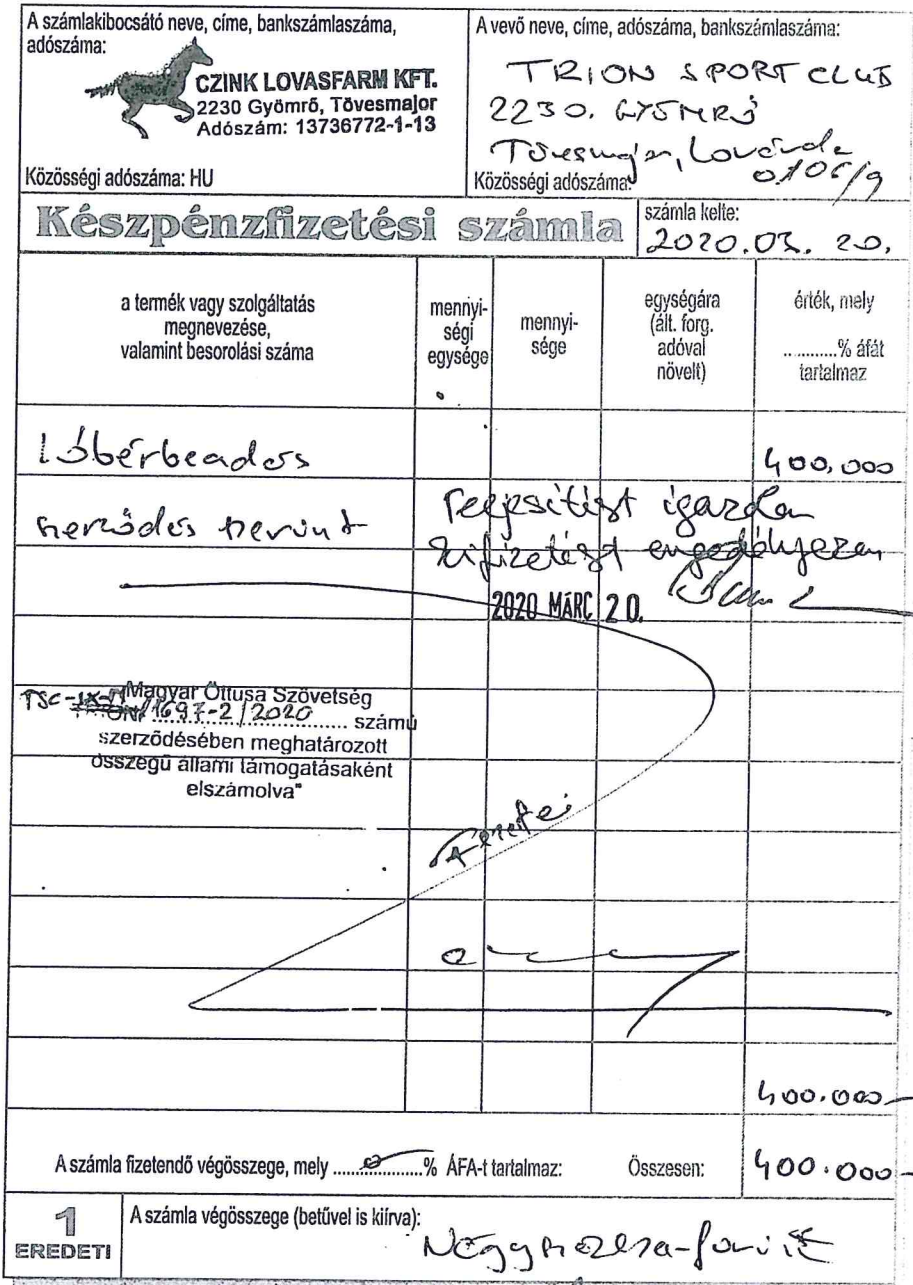 A számlakibocsátó neve, címe, bankszámlaszáma,
adószáma:
CZINK LOVASFARM KFT.
2230 Gyömrő, Tövesmajor
Adószám: 13736772-1-13
Közösségi adószáma: HU
A vevő neve, címe, adószáma, bankszámlaszáma:
TRION SPORT CLUB
2230. GYÖMRŐ
Tövesmajor, Lovarda
0106/9
Közösségi adószáma:
Készpénzfizetési számla
számla kelte:
2020.03. 20.
a termék vagy szolgáltatás
megnevezése,
valamint besorolási száma
mennyi-
ségi
egysége
mennyi-
sége
egységára
(ált. forg.
adóval
növelt)
érték, mely
............% áfát
tartalmaz
Lóbérbeadás
400.000
szerződés szerint
Teljesítést igazolom
kifizetést engedélyezem
2020 MÁRC 20.
Magyar Öttusa Szövetség
TSC-IX-11/1697-2/2020 .................. számú
szerződésében meghatározott
összegű állami támogatásaként
elszámolva"
Fizetve
400.000
A számla fizetendő végösszege, mely ......0......% ÁFA-t tartalmaz:
Összesen:
400.000
1
EREDETI
A számla végösszege (betűvel is kiírva):
Négyszázezer-forint